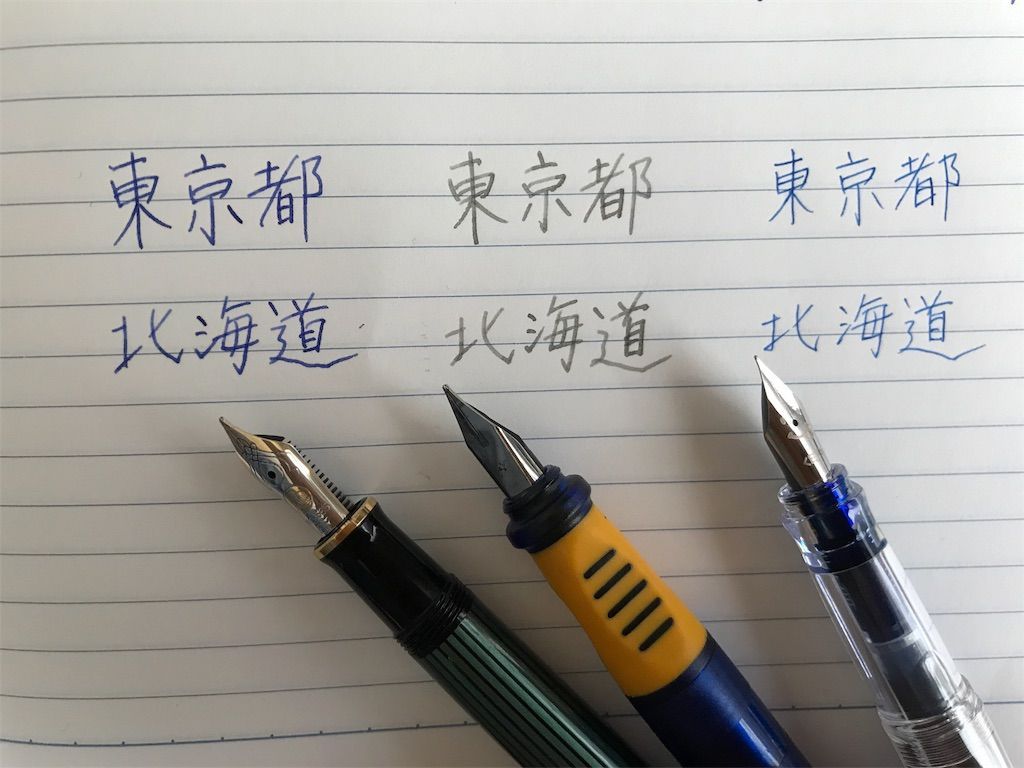 東京都 東京都 東京都
北海道 北海道 北海道